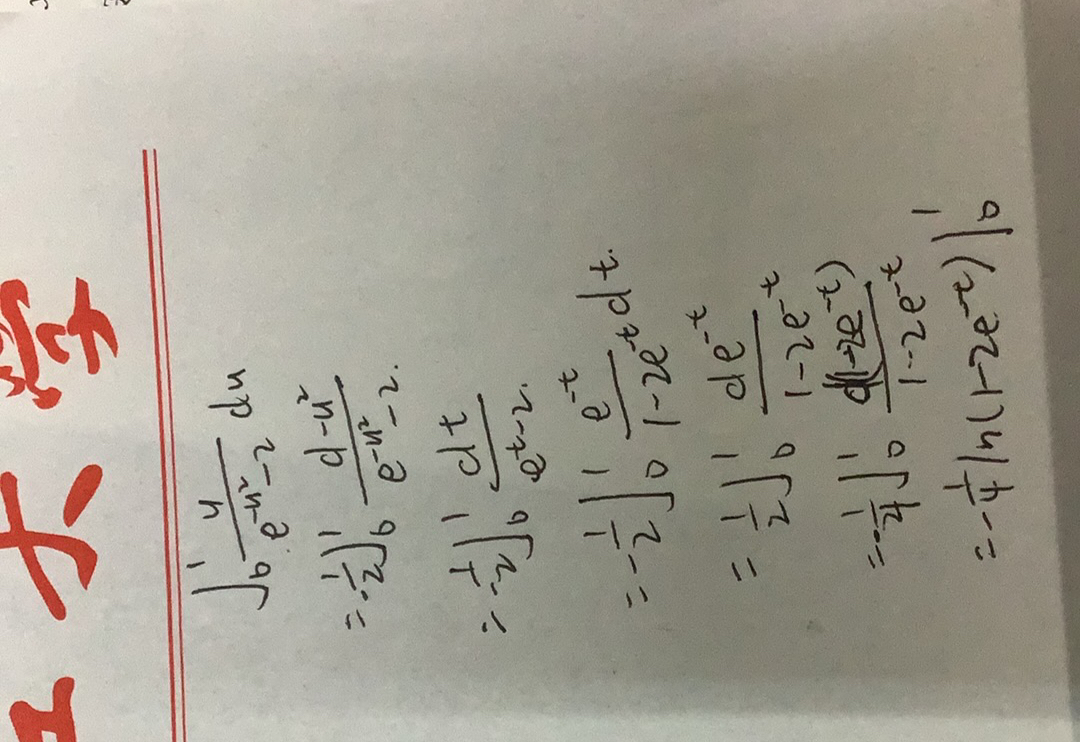 大学
∫₀¹ u/(e^(-u²)-2) du
= -1/2 ∫₀¹ d-u²/(e^(-u²)-2).
= -1/2 ∫₀¹ dt/(e^t-2).
= -1/2 ∫₀¹ e^(-t)/(1-2e^(-t)) dt.
= 1/2 ∫₀¹ de^(-t)/(1-2e^(-t))
= -1/4 ∫₀¹ d(1-2e^(-t))/(1-2e^(-t))
= -1/4 ln(1-2e^(-t))|₀¹